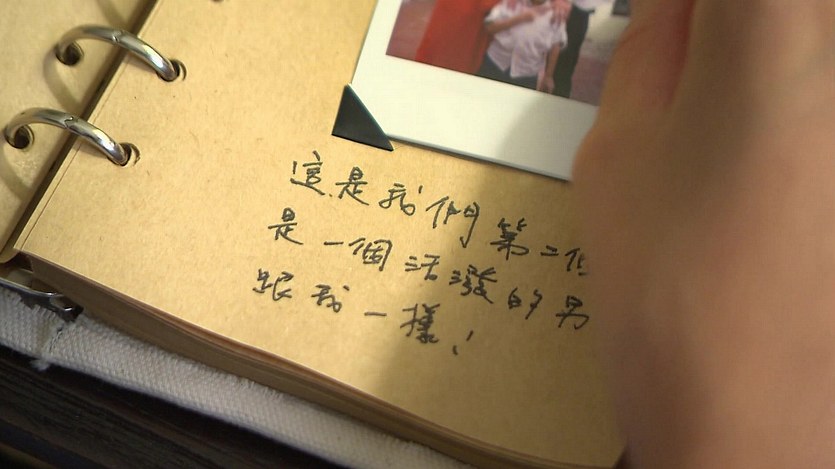 這是我們第二個
是一個活潑的男
跟我一樣！